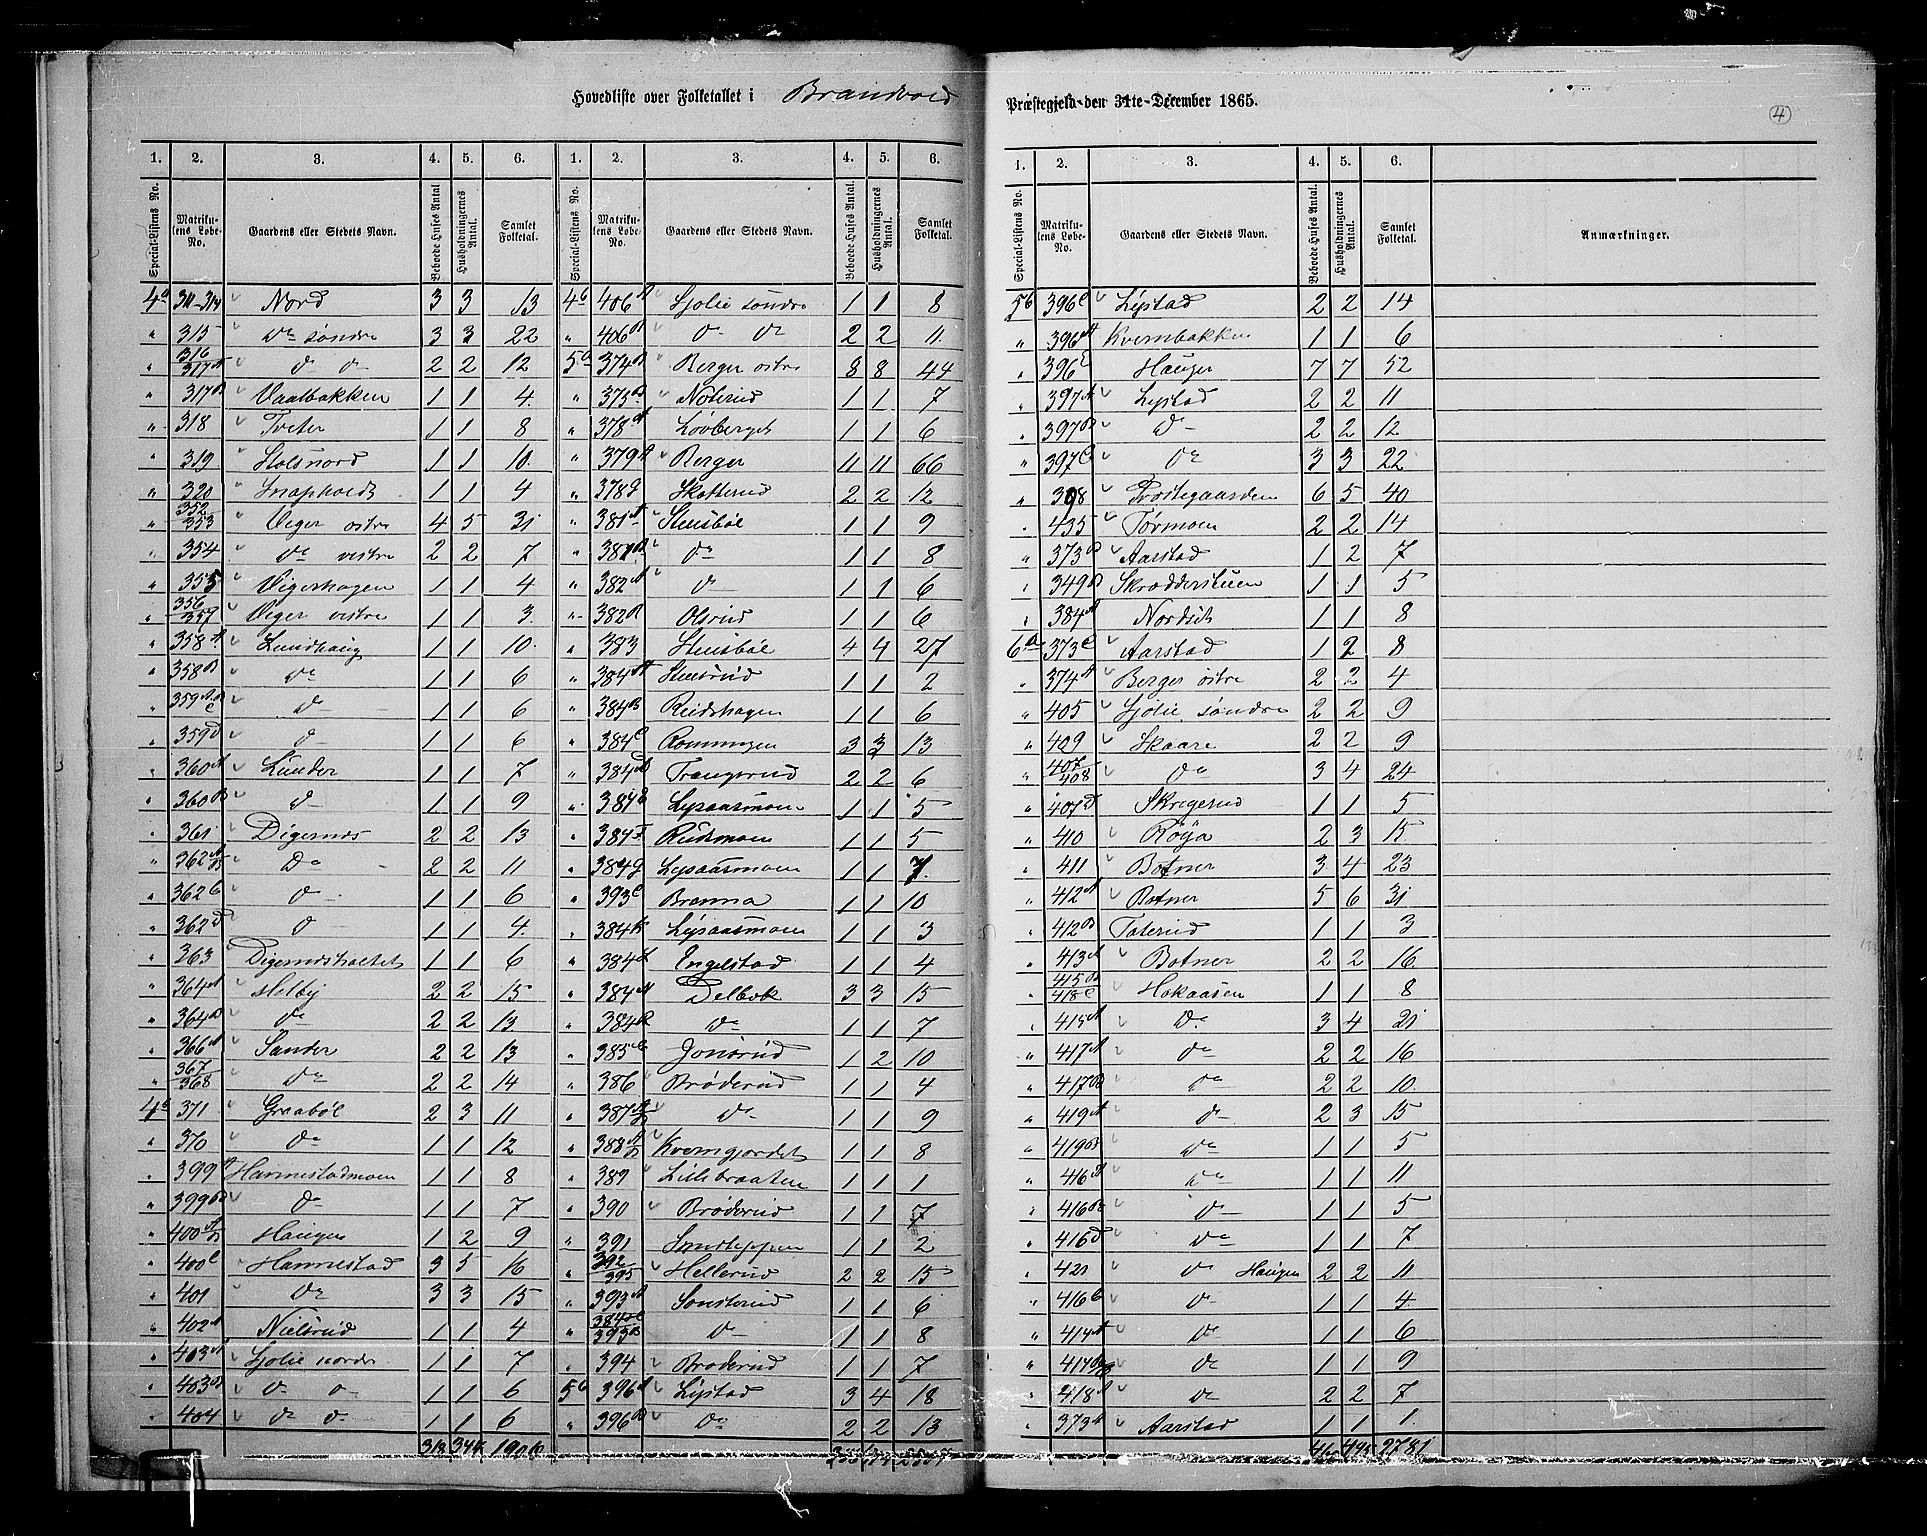 Hovedliste over Folketallet i Brandvold Præstegjeld den 31te December 1865.
4
1. 2. 3. 4. 5. 6. 1. 2. 3. 4. 5. 6.
Special-Listens No. Matrikulens Løbe-No. Gaardens eller Stedets Navn. Beboede Huses Antal Husholdningernes Antal. Samlet Folketal. Special-Listens No. Matrikulens Løbe-No. Gaardens eller Stedets Navn. Beboede Huses Antal. Husholdningernes Antal. Samlet Folketal.
4a 311-314 Nord 3 3 13
" 315 do søndre 3 3 22
" 316/317A do do 2 2 12
" 317B Vaalbakken 1 1 4
" 318 Tveter 1 1 8
" 319 Stolsnord 1 1 10
" 320 1 1 4
" 352/353 Viger østre 4 5 31
" 354 do vestre 2 2 7
" 355 Vigershagen 1 1 4
" 356/357 Viger vestre 1 1 3
" 358A Lundhaug 1 1 10
" 358B do 1 1 6
" 359 do 1 1 6
" 359D do 1 1 6
" 360A Lunder 1 1 7
" 360B do 1 1 9
" 361 Digernes 2 2 13
" 362 do 2 2 11
" 362C do 1 1 6
" 362D do 1 1 4
" 363 Digernesholtet 1 1 6
" 364A Melby 2 2 15
" 364B do 2 2 13
" 366A Sander 2 2 13
" 367/368 do 2 2 14
4b 371 Graabøl 2 3 11
" 370 do 1 1 12
" 399A Hammestadmoen 1 1 8
" 399B do 1 1 7
" 400 Haugen 1 2 9
" 400C Hammestad 3 5 16
" 401 do 3 3 15
" 402A Nielsrud 1 1 4
" 403A Sjølie nordre 1 1 7
" 403B do do 1 1 6
" 404 do do 1 1 6
318 344 1906
4b 406A Sjolie søndre 1 1 8
" 406B do do 2 2 11
5a 374B Berger østre 8 8 44
" 375B Noterud 1 1 7
" 378A Løvberget 1 1 6
" 379A Berger 11 11 66
" 378 Skotterud 2 2 12
" 381A Stensbøl 1 1 9
" 381B do 1 1 8
" 382A do 1 1 6
" 382B Olsrud 1 1 6
" 383 Stensbøl 4 4 27
" 384A Stensrud 1 1 2
" 384B Reidshagen 1 1 6
" 384C Romningen 3 3 13
" 384D Trangerud 2 2 6
" 384E Lysaasmoen 1 1 5
" 384F Reidsmoen 1 1 5
" 384G Lysaasmoen 1 1 7
" 393C Brenna 1 1 10
" 384K Lysaasmoen 1 1 3
" 384L Engelstad 1 1 4
" 384M Delbæk 3 3 15
" 384 do 1 1 7
" 385 Jonsrud 1 2 10
" 386 Brøderud 1 1 4
" 387 do 1 1 9
" 388 Kvemgjordet 1 1 8
" 389 Lillebraaten 1 1 1
" 390 Brøderud 1 1 7
" 391 1 1 2
" 392/395 Hellerud 2 2 15
" 393A Sonsterud 1 1 6
" 393B do 1 1 8
" 394 Brøderud 1 1 7
5b 396A Lystad 3 4 18
" 396B do 2 2 13
1. 2. 3. 4. 5. 6.
Special-Listens No. Matrikulens Løbe-No. Gaardens eller Stedets Navn. Beboede Huses Antal. Husholdningernes Antal. Samlet Folketal. Anmærkninger.
5b 396C Lystad 2 2 14
" 396D Kvernbakken 1 1 6
" 396E Hauger 7 7 52
" 397A Lystad 2 2 11
" 397B do 2 2 12
" 397C do 3 3 22
" 398 Præstegaarden 6 5 40
" 435 Tørmoen 2 2 14
" 373B Aarstad 1 2 7
" 349B Skrædderstuen 1 1 5
" 384 Nordset 1 1 8
6a 373C Aarstad 1 2 8
" 374A Berger østre 2 2 4
" 405 Sjolie søndre 2 2 9
" 409 Skaare 2 2 9
" 407/408 do 3 4 24
" 407 Skrigerud 1 1 5
" 410 Røga 2 3 15
" 411 Botner 3 4 23
" 412A Botner 5 6 31
" 412B Taterud 1 1 3
" 413A Botner 2 2 16
" 415B/418C Hokaasen 1 1 8
" 415A do 3 4 21
" 417A do 2 2 16
" 417B do 2 2 10
" 419A do 2 3 15
" 419B do 1 1 5
" 416A do 1 1 11
" 416B do 1 1 5
" 416D do 1 1 7
" 421 do Haugen 2 2 11
" 416C do 1 1 4
" 414A do 1 1 6
" 414B do 1 1 9
" 418A do 2 2 7
" 373A Aarstad 1 1 1
495 2781